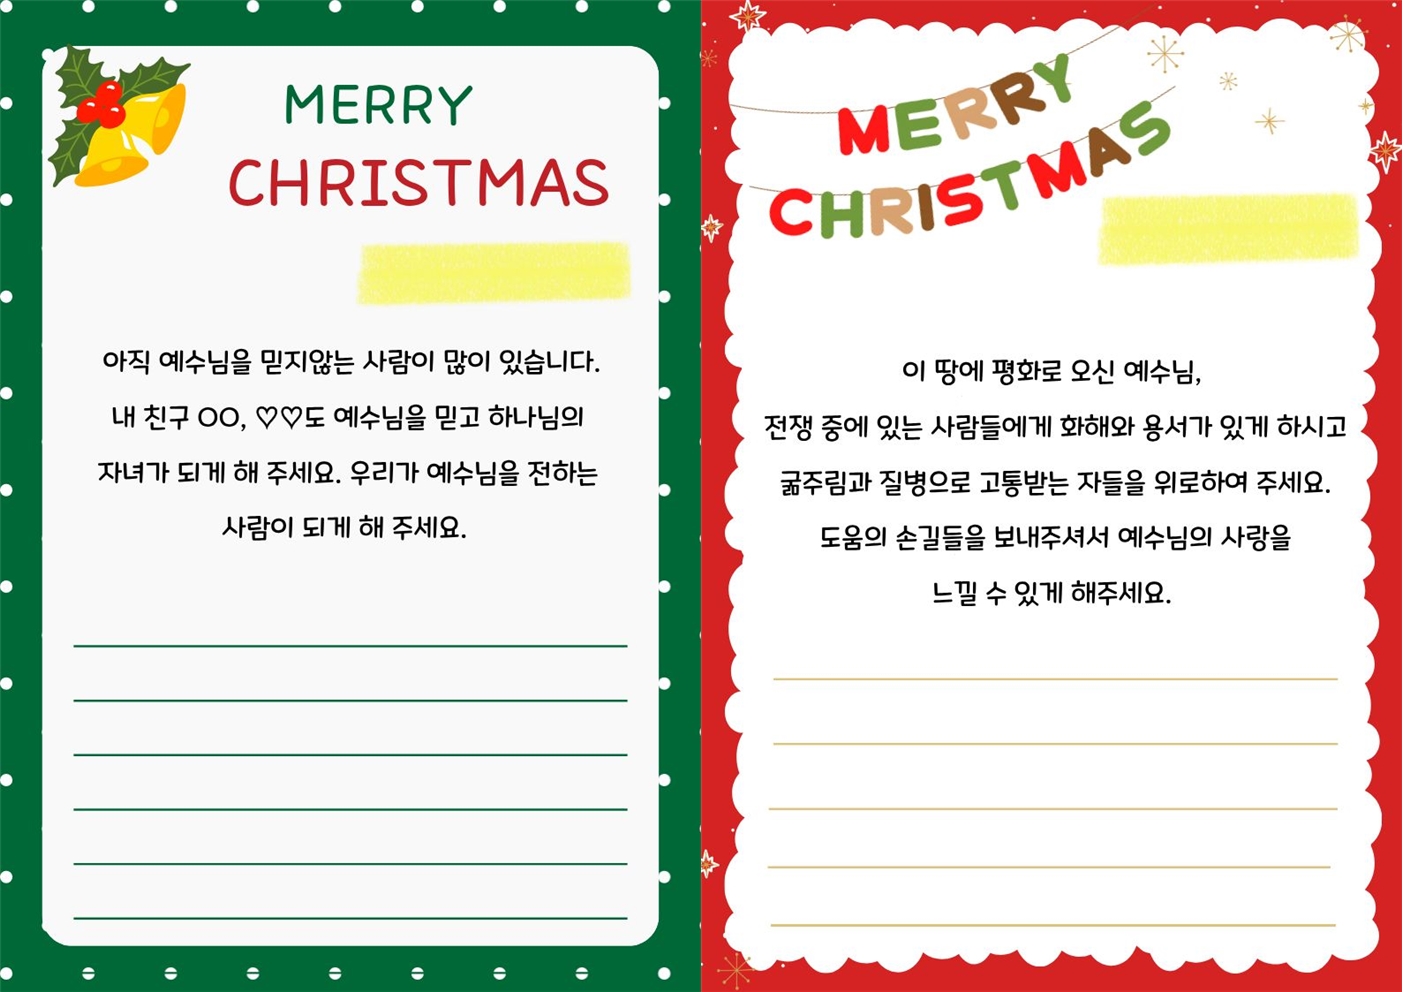 MERRY
CHRISTMAS
아직 예수님을 믿지않는 사람이 많이 있습니다.
내 친구 OO, ♡♡도 예수님을 믿고 하나님의
자녀가 되게 해 주세요. 우리가 예수님을 전하는
사람이 되게 해 주세요.
MERRY
CHRISTMAS
이 땅에 평화로 오신 예수님,
전쟁 중에 있는 사람들에게 화해와 용서가 있게 하시고
굶주림과 질병으로 고통받는 자들을 위로하여 주세요.
도움의 손길들을 보내주셔서 예수님의 사랑을
느낄 수 있게 해주세요.